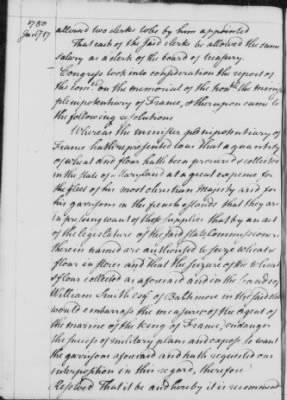 1780
Jany 17
allowed two clerks to be by him appointed
That each of the said clerks be allowed the same
salary as a clerk of the board of treasury.
Congress took into consideration the report of
the comee on the memorial of the honble the minr
plenipotentiary of France, & thereupon came to
the following resolutions
Whereas the minister plenipotentiary of
France hath represented to us that a quantity
of wheat and flour hath been procured & collected
in the state of Maryland at a great expence for
the fleet of his most christian Majesty and for
his garrisons in the french islands that they are
in pressing want of those supplies that by an act
of the legislature of the said state Commissioners
therein named are authorised to seize wheat &
flour in stores and that the seizure of the wheat
& flour collected as aforesaid and in the hands of
William Smith esqr of Baltimore in the said state
would embarass the measures of the Agent of
the marine of the king of France, endanger
the success of military plans and expose to want
the garrisons aforesaid and hath requested our
interposition in this regard, therefore
Resolved That it be and hereby it is recommend